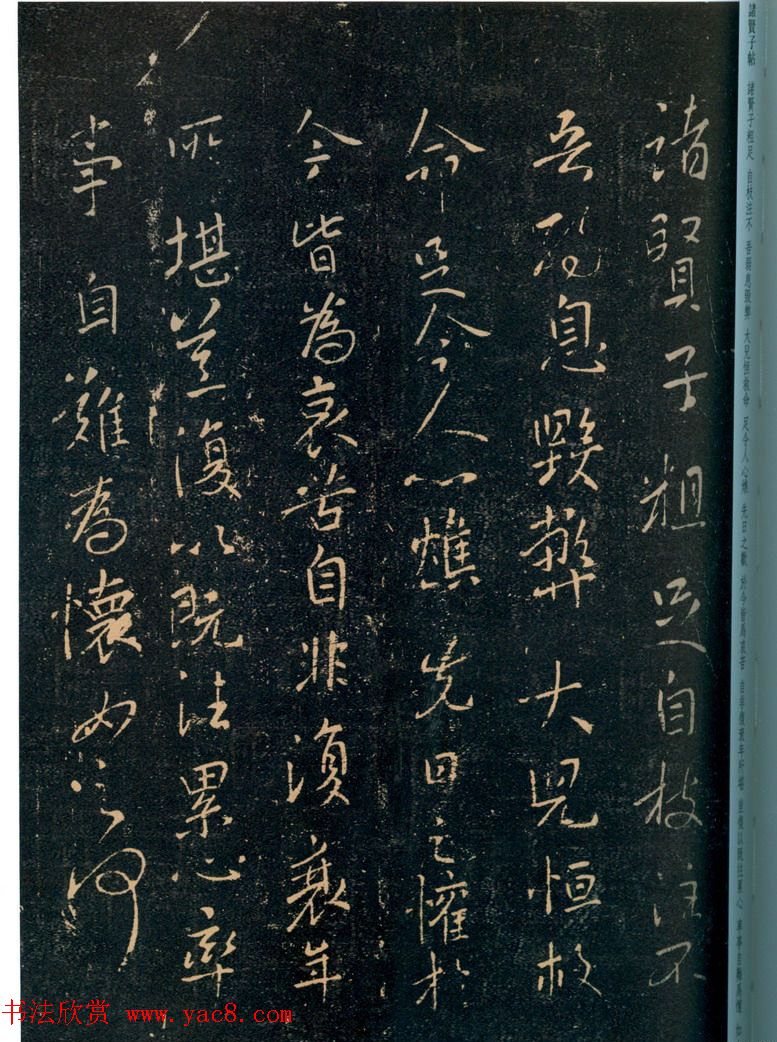 諸賢子粗足自枝注不
吾弱息毀弊大兄恒救
命足令人心燋先日之懽於
今皆為哀苦自非復衰年
所堪並復以既往累心率
事自難為懷如之何
諸賢子帖 諸賢子粗足 自枝注不 吾弱息毀弊 大兄恒救命 足令人心燋 先日之歡 於今皆為哀苦 自非復衰年所堪 並復以既往累心 率事自難為懷 如
书法欣赏 www.yac8.com